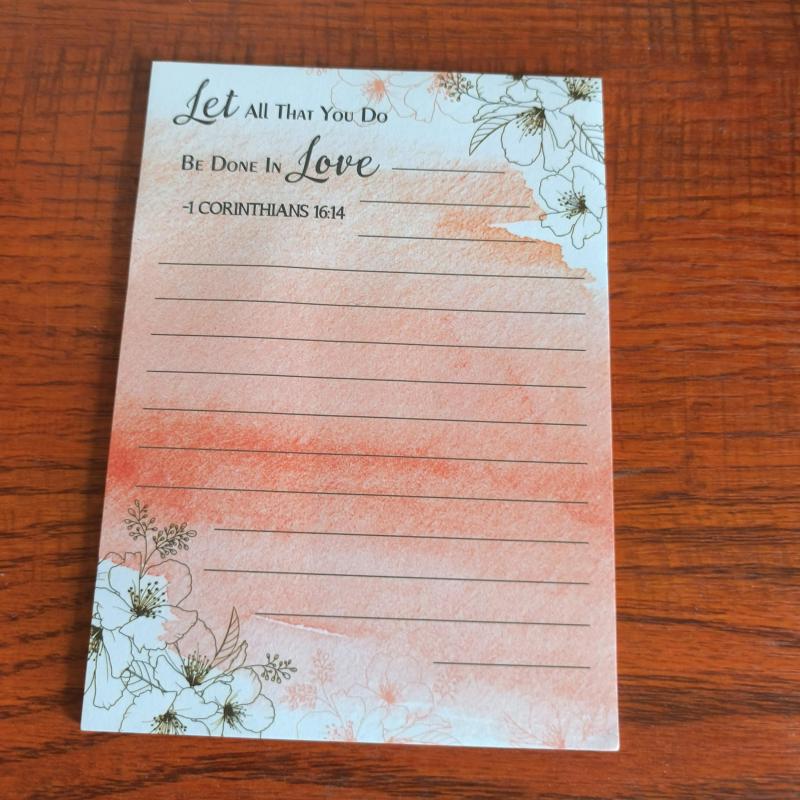 Let All That You Do
Be Done In Love
-1 CORINTHIANS 16:14